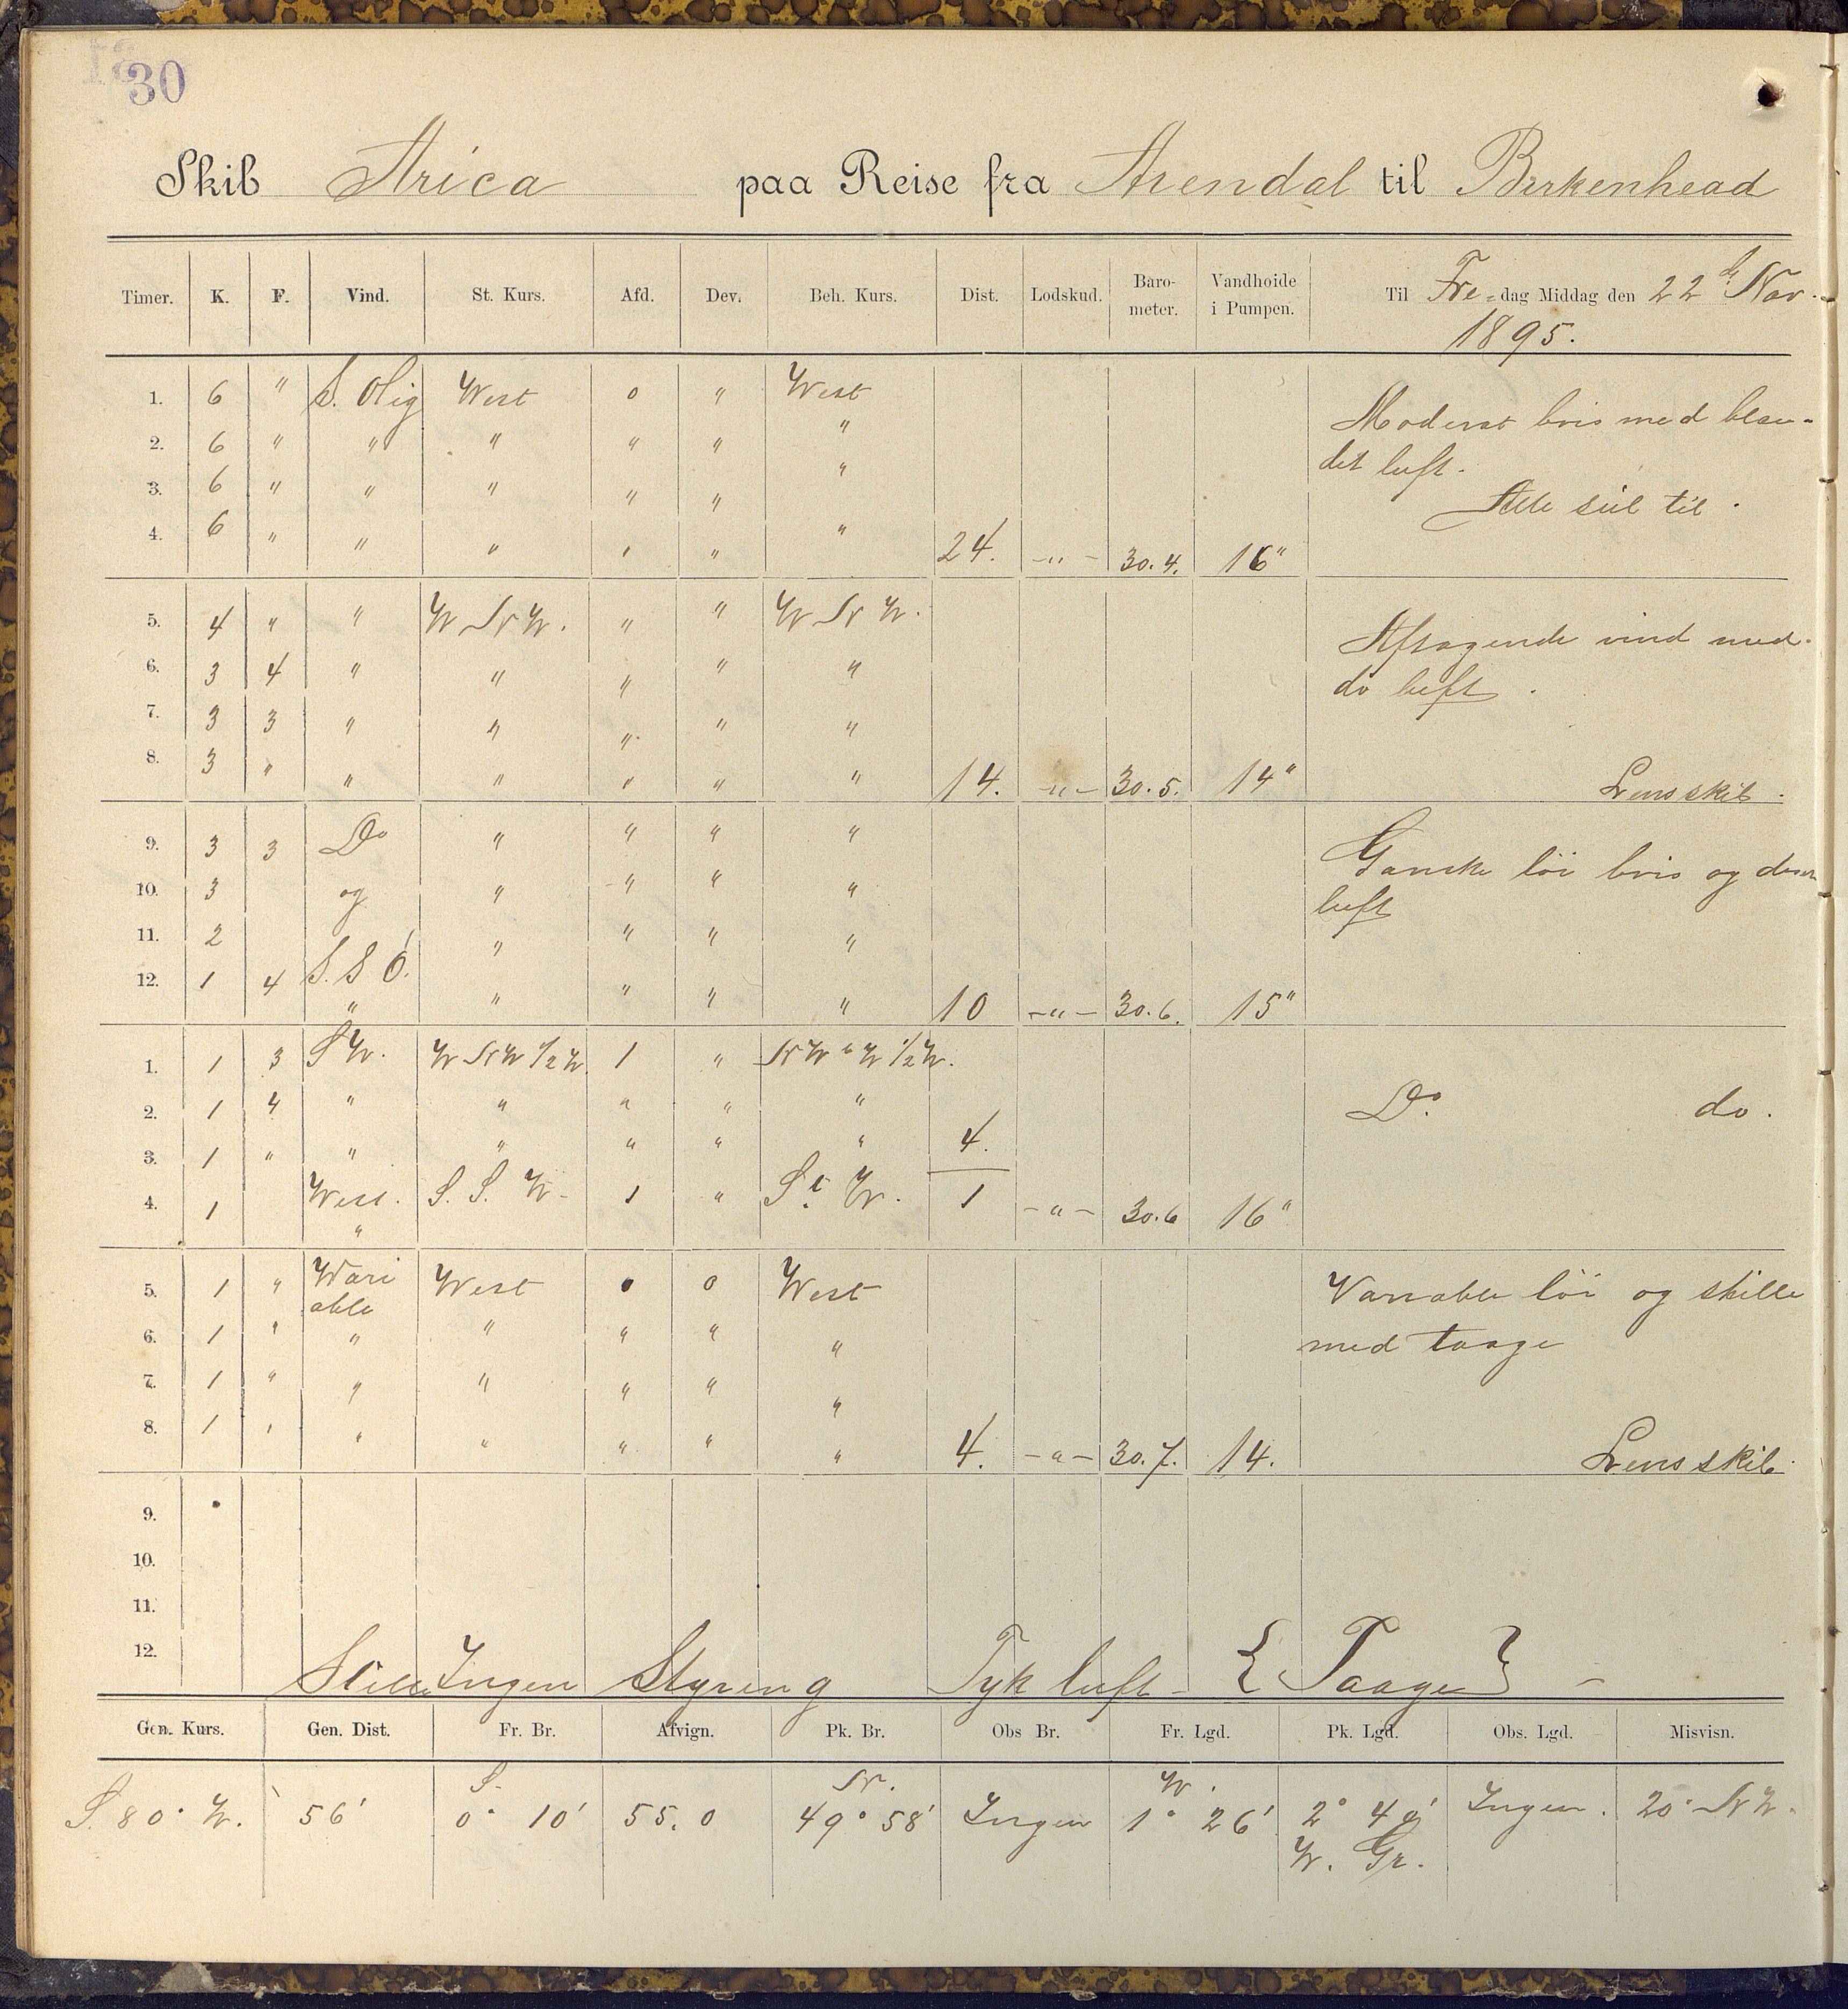 30
Skib Arica paa Reise fra Arendal til Birkenhead
Timer. K. F. Vind. St. Kurs. Afd. Dev. Beh. Kurs. Dist. Lodskud. Baro- meter. Vandhoide i Pumpen. Til Fre-dag Middag den 22 de Nov.
1895.
1. 6 " S. Olig West 0 " West
Moderat bris med blan-
2. 6 " " " " " "
det luft.
3. 6 " " " " " "
Alle seil til.
4. 6 " " " " " " 24. -"- 30.4. 16"
5. 4 " " W N W. " " W N W.
Aftagende vind med
6. 3 4 " " " " "
do luft.
7. 3 3 " " " " "
8. 3 " " " " " " 14. -"- 30.5. 14" Lens skib.
9. 3 3 Do " " " "
Ganske löi bris og
10. 3 og " " " "
luft
11. 2 S. S Ö. " " " "
12. 1 4 " " " " " 10 -"- 30.6. 15"
1. 1 3 S W. W N W 1/2 W. 1 " N W b W 1/2 W.
2. 1 4 " " " " " Do. do.
3. 1 " " " " " " 4.
4. 1 West. S. S. W. 1 " S t W. 1 -"- 30.6 16"
"
5. 1 " Wari West 0 0 West Variable löi og stille
able
6. 1 " " " " " " med taage
7. 1 " " " " " "
8. 1 " " " " " " 4. -"- 30.7. 14. Lens skib.
9.
10.
11.
12.
Stille Ingen Styring Tyk luft - { Taage } -
Gen. Kurs. Gen. Dist. Fr. Br. Afvign. Pk. Br. Obs Br. Fr. Lgd. Pk. Lgd. Obs. Lgd. Misvisn.
S. N. W.
S. 80° W. 56' 0° 10' 55.0 49° 58' Ingen 1° 26' 2° 49' Ingen. 20° N W.
W. Gr.